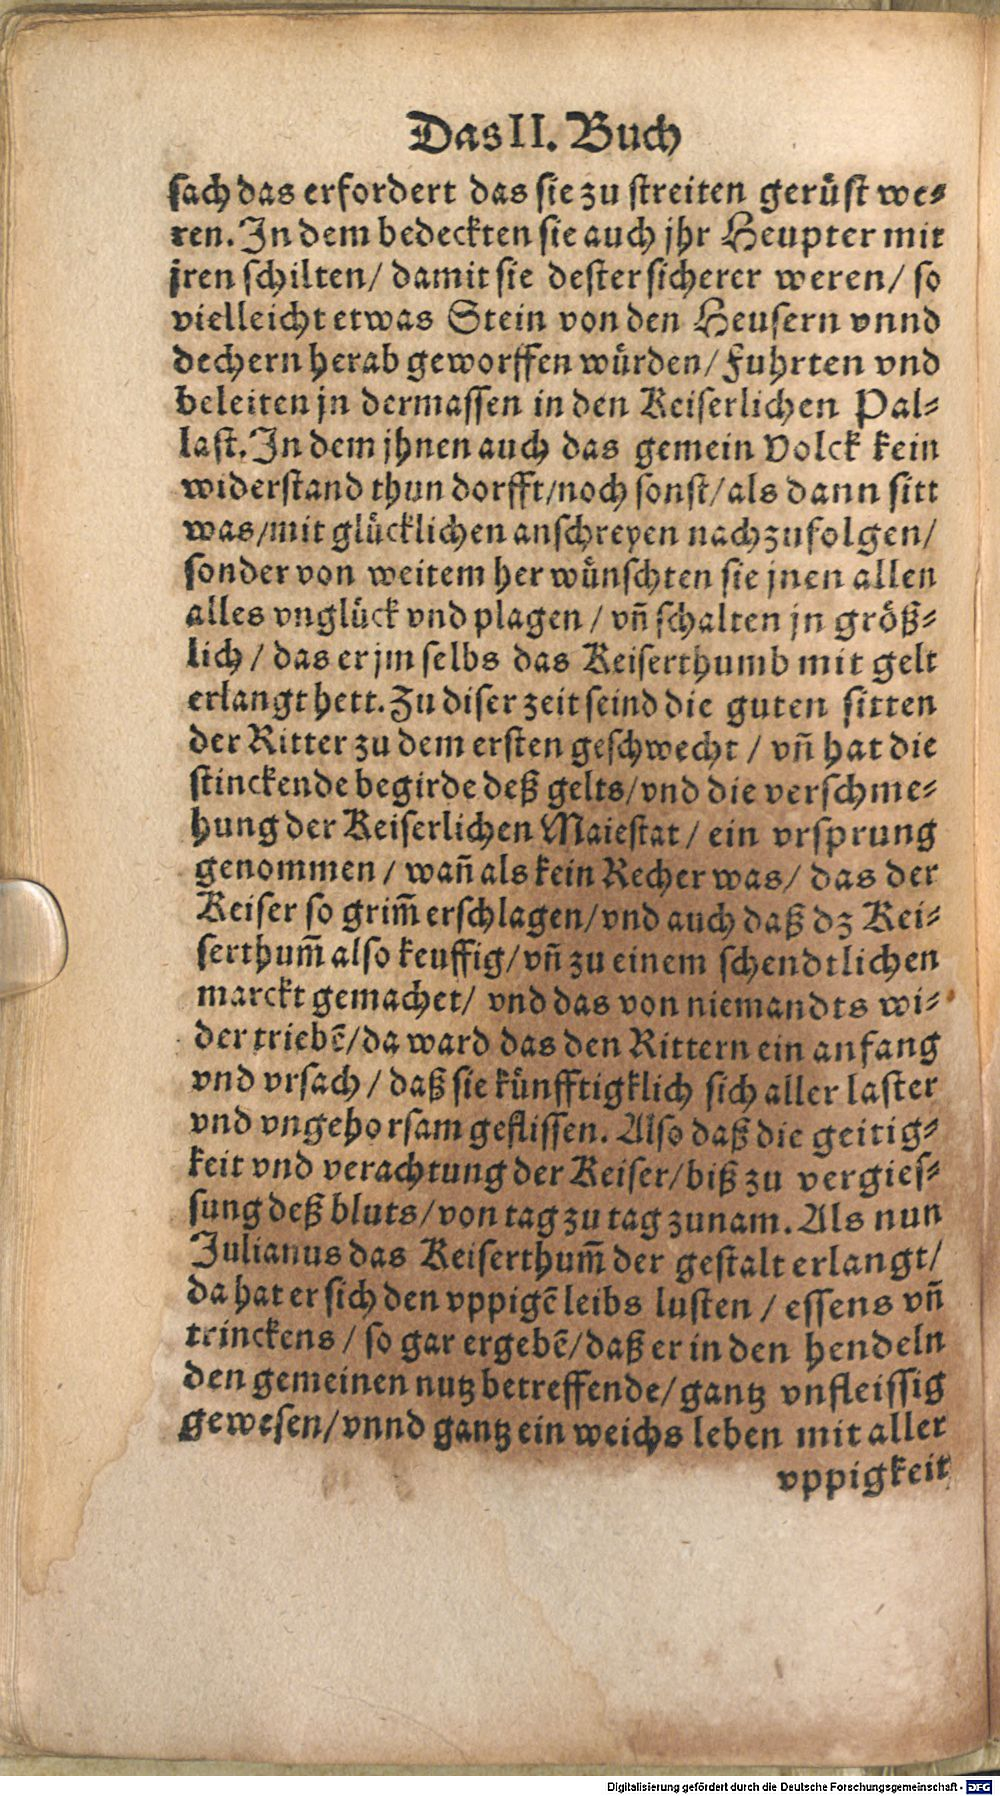 Das II. Buch
sach das erfordert das sie zu streiten gerüst we-
ren. In dem bedeckten sie auch jhr Heupter mit
jren schilten/ damit sie dester sicherer weren/ so
vielleicht etwas Stein von den Heusern vnnd
dechern herab geworffen würden/ fuhrten vnd
beleiten jn dermassen in den Keiserlichen Pal-
last. In dem jhnen auch das gemein Volck kein
widerstand thun dorfft/ noch sonst/ als dann sitt
was/ mit glücklichen anschreyen nachzufolgen/
sonder von weitem her wünschten sie jnen allen
alles vnglück vnd plagen / vñ schalten jn größ-
lich / das er jm selbs das Keiserthumb mit gelt
erlangt hett. Zu diser zeit seind die guten sitten
der Ritter zu dem ersten geschwecht / vñ hat die
stinckende begirde deß gelts/ vnd die verschme-
hung der Keiserlichen Maiestat / ein vrsprung
genommen / wañ als kein Recher was/ das der
Keiser so grim̃ erschlagen/ vnd auch daß dz Kei-
serthum̃ also keuffig/ vñ zu einem schendtlichen
marckt gemachet/ vnd das von niemandts wi-
der triebẽ/ da ward das den Rittern ein anfang
vnd vrsach / daß sie künfftigklich sich aller laster
vnd vngehorsam geflissen. Also daß die geitig-
keit vnd verachtung der Keiser/ biß zu vergies-
sung deß bluts/ von tag zu tag zunam. Als nun
Julianus das Keiserthum̃ der gestalt erlangt/
da hat er sich den vppigẽ leibs lusten / essens vñ
trinckens / so gar ergebẽ/ daß er in den hendeln
den gemeinen nutz betreffende/ gantz vnfleissig
gewesen/ vnnd gantz ein weichs leben mit aller
vppigkeit
Digitalisierung gefördert durch die Deutsche Forschungsgemeinschaft - DFG